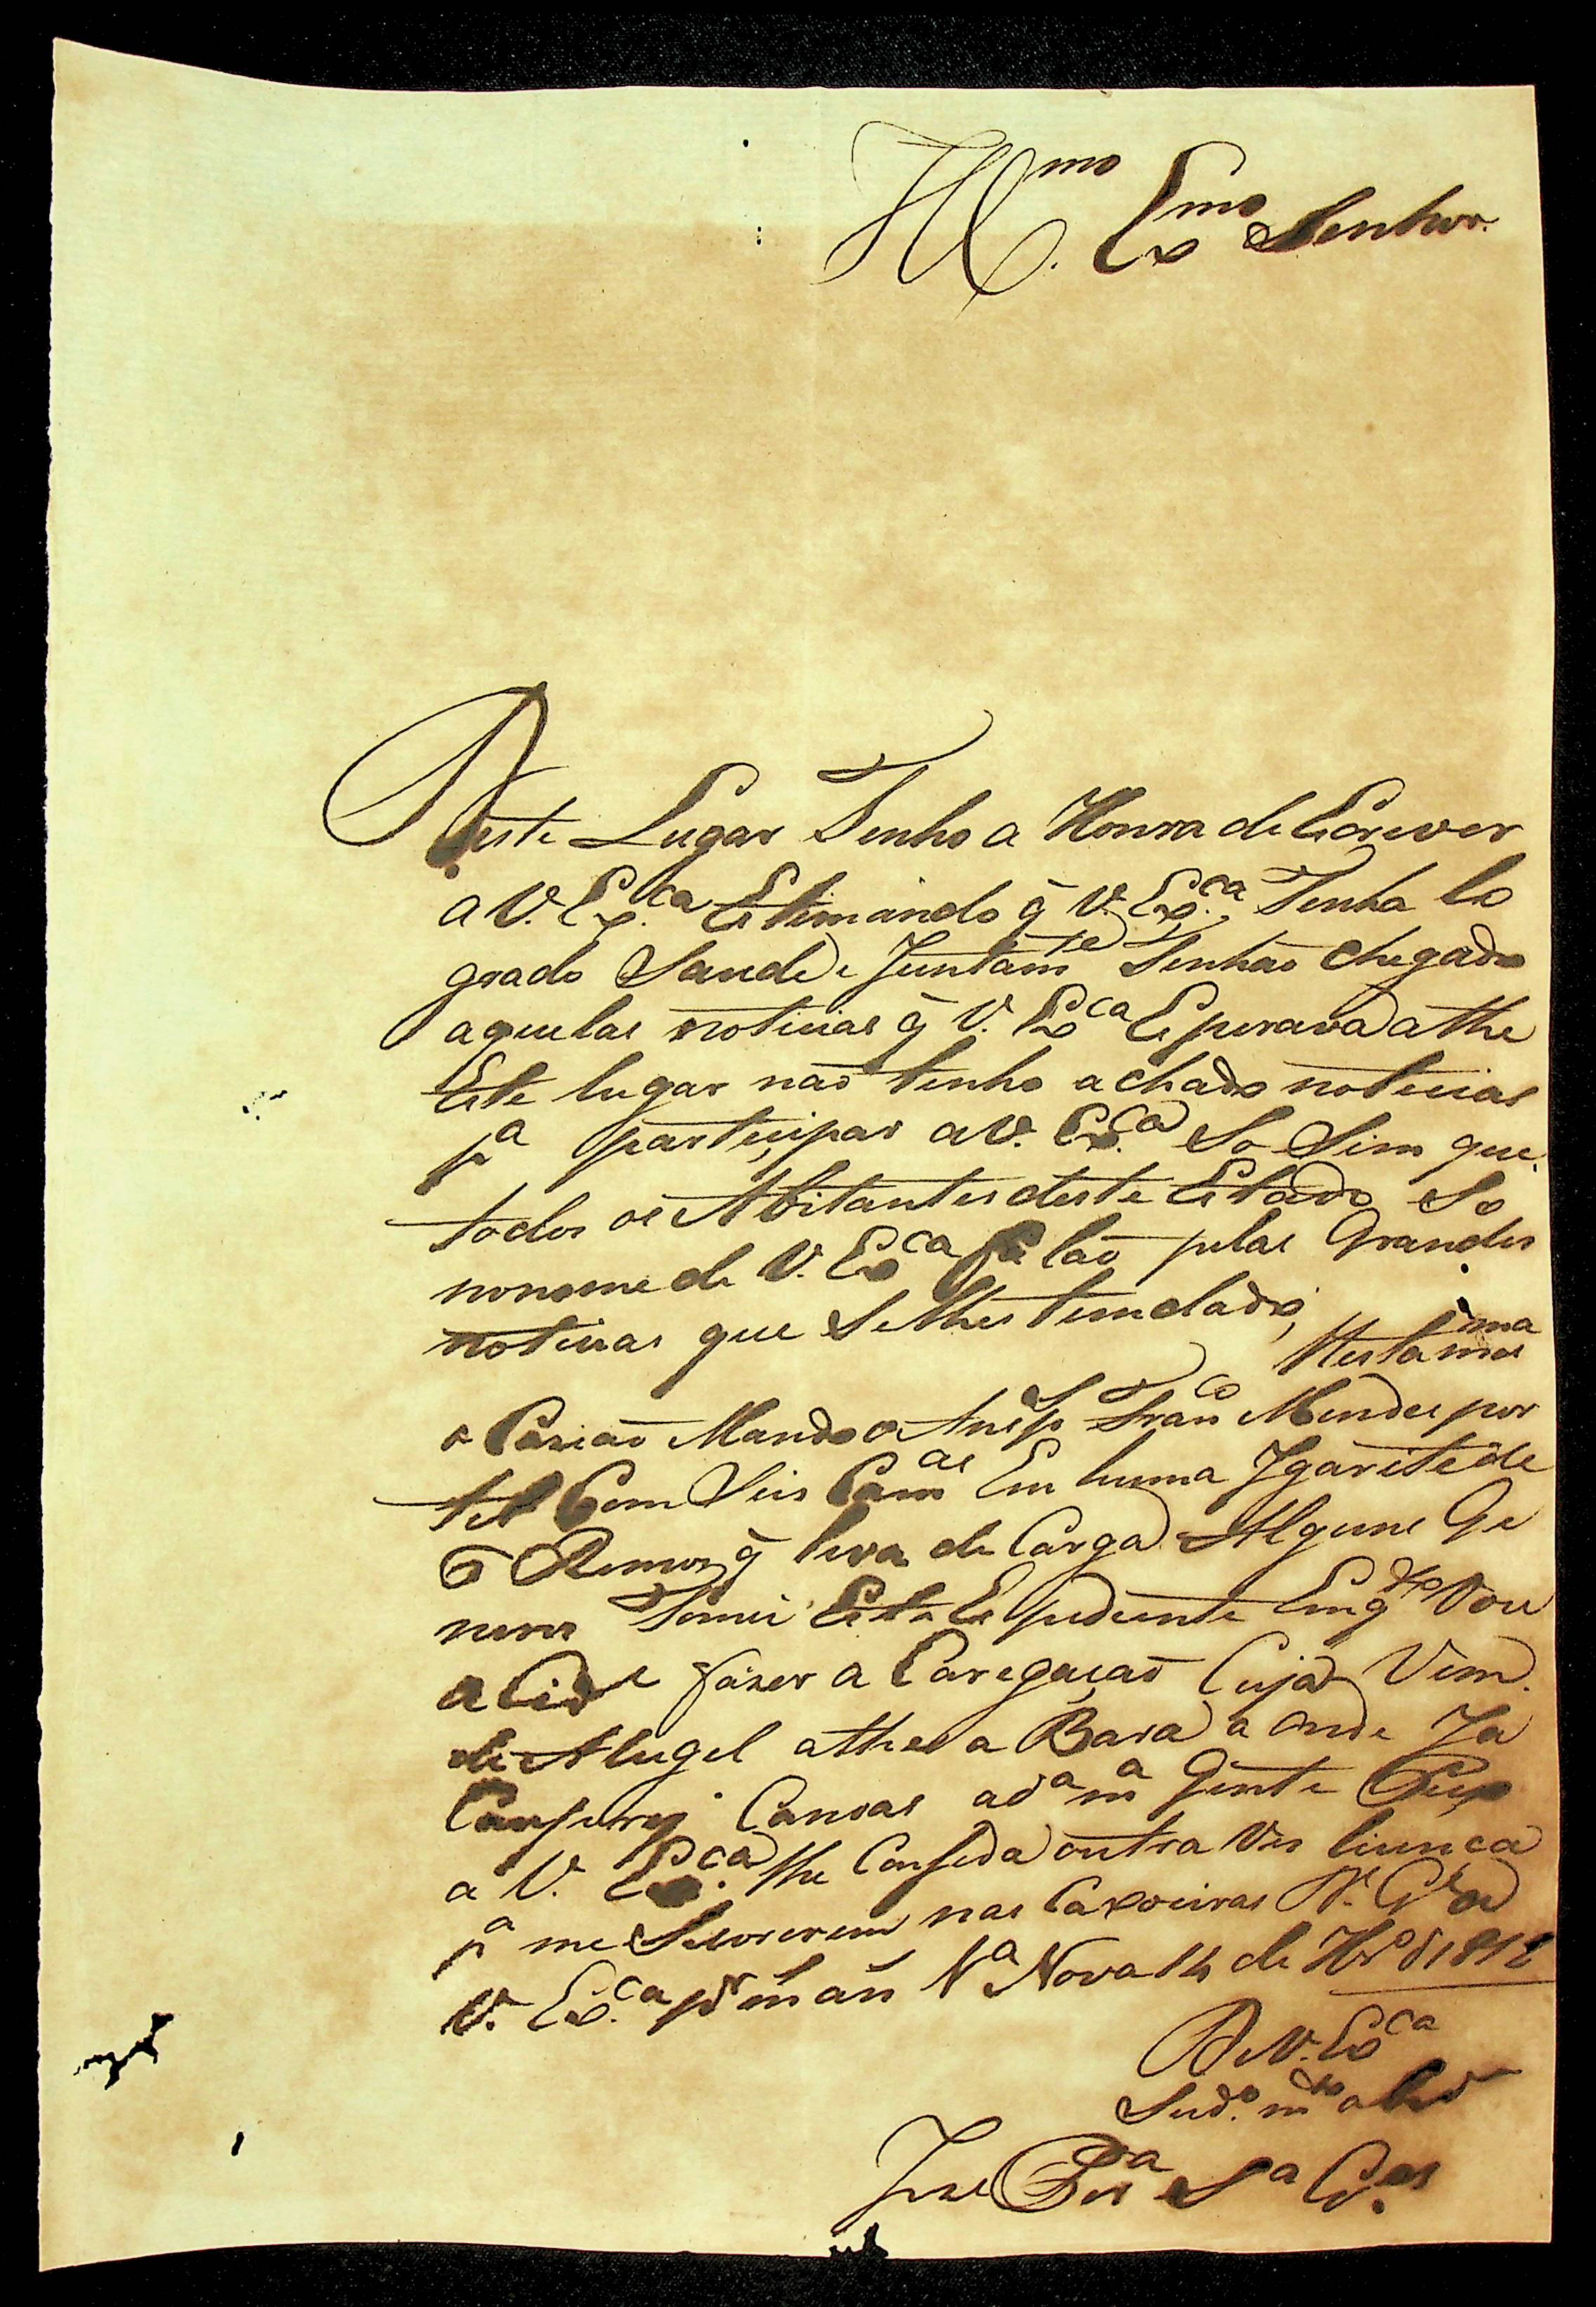 Ill.mo Ex.mo Senhor.
Deste Lugar Tenho a Honra de Escrever
a V. Ex.ca Estimando q̃ V. Ex.ca Tenha lo
grado Saude e Juntam.te Tenhão chegado
aquelas noticias q̃ V. Ex.ca Esperava athe
Este lugar não tenho achado noticias
p.a participar a V. Ex.ca So Sim que
todos os Abitantes deste Estado So
no nome de V. Ex.ca falão pelas Grandes
noticias que Selhes tem dado;
Nesta mesma
o Cazião Mando o Anesp. Fran.co Mendes por
tel Com Seis Cam.as Em huma Igarité de
6 Remos q̃ leva de Carga Alguns Ge
neros Tomei Este Espediente Emq.to Vou
a Cid.e fazer a Caregação Cuja Vem
de Alugel athe a Bara a onde Ja
Canoas ad.a m.a Gente
a V. Ex.ca lhe Conseda outra Ves licença
p.a me Secorerem nas Caxoeiras N. G.e a
V. Ex.ca p.r m. an. V.a Nova 14 de 1812
De V. Ex.ca
Sud.o m.to
Joze Per.a S.a